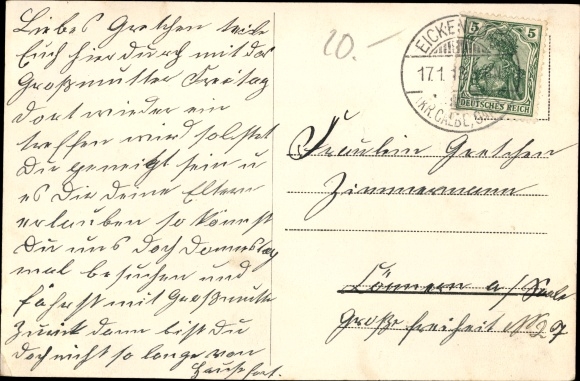 Liebes Gretchen teile
Euch hierdurch mit das
Großmutter Freitag
dort wieder ein
treffen wird solstet
Du geneigt sein u
es Dir deine Eltern
erlauben so könnst
Du uns doch Donnerstag
mal besuchen und
fährst mit Großmutter
Zurück dann bist Du
doch nicht so lange von
Hause fort.
20.-
EICKEN
17.1.
(KR. CALBE,
5 5
DEUTSCHES REICH
Fräulein Gretchen
Zimmermann
Cönnern a/Saale
Große Freiheit No 27